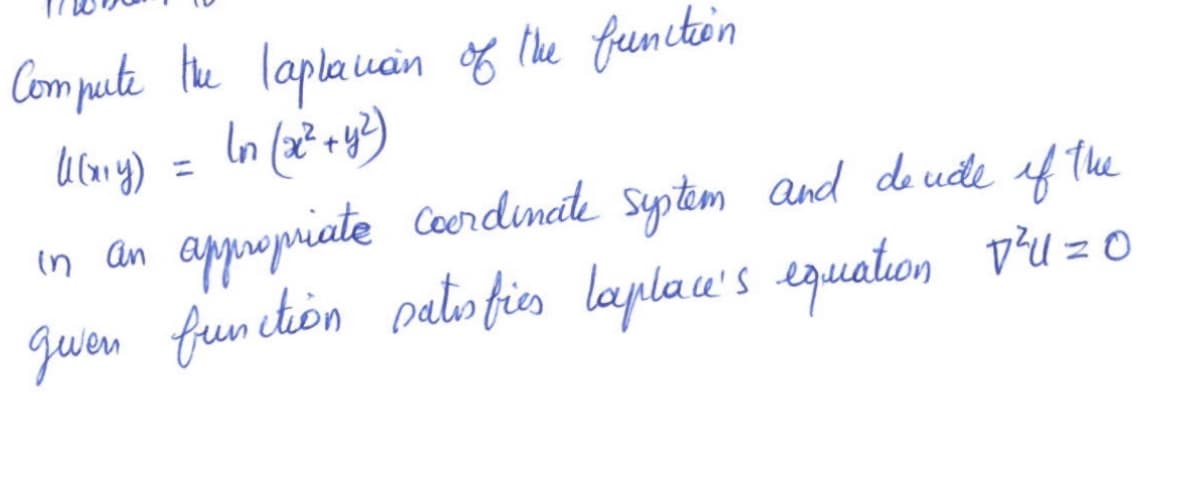 Compute the laplacian of the function
u(x,y) = ln (x² + y²)
in an appropriate coordinate system and decide if the
given function satisfies laplace's equation ∇²u = 0